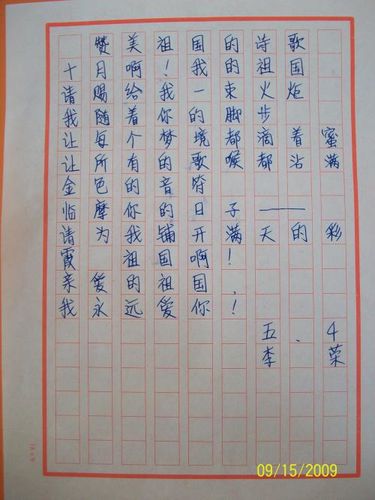 赞美祖国的诗歌
十月啊！我的祖国
请赐给我一束火炬
我随着你的脚步
让每个梦境都滴着蜜
让所有的歌喉都沾满
金色的音符
临摩你的日子——
请为我铺开满天的彩
霞 祖国啊！
亲爱的祖国！
我永远爱你！
五.4
李荣
09/15/2009